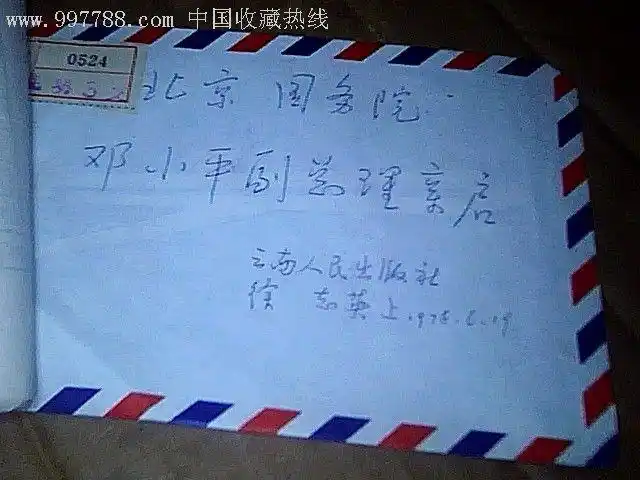 www.997788.com 中国收藏热线
0524
北京 国务院
邓小平副总理亲启
云南人民出版社
徐志英上